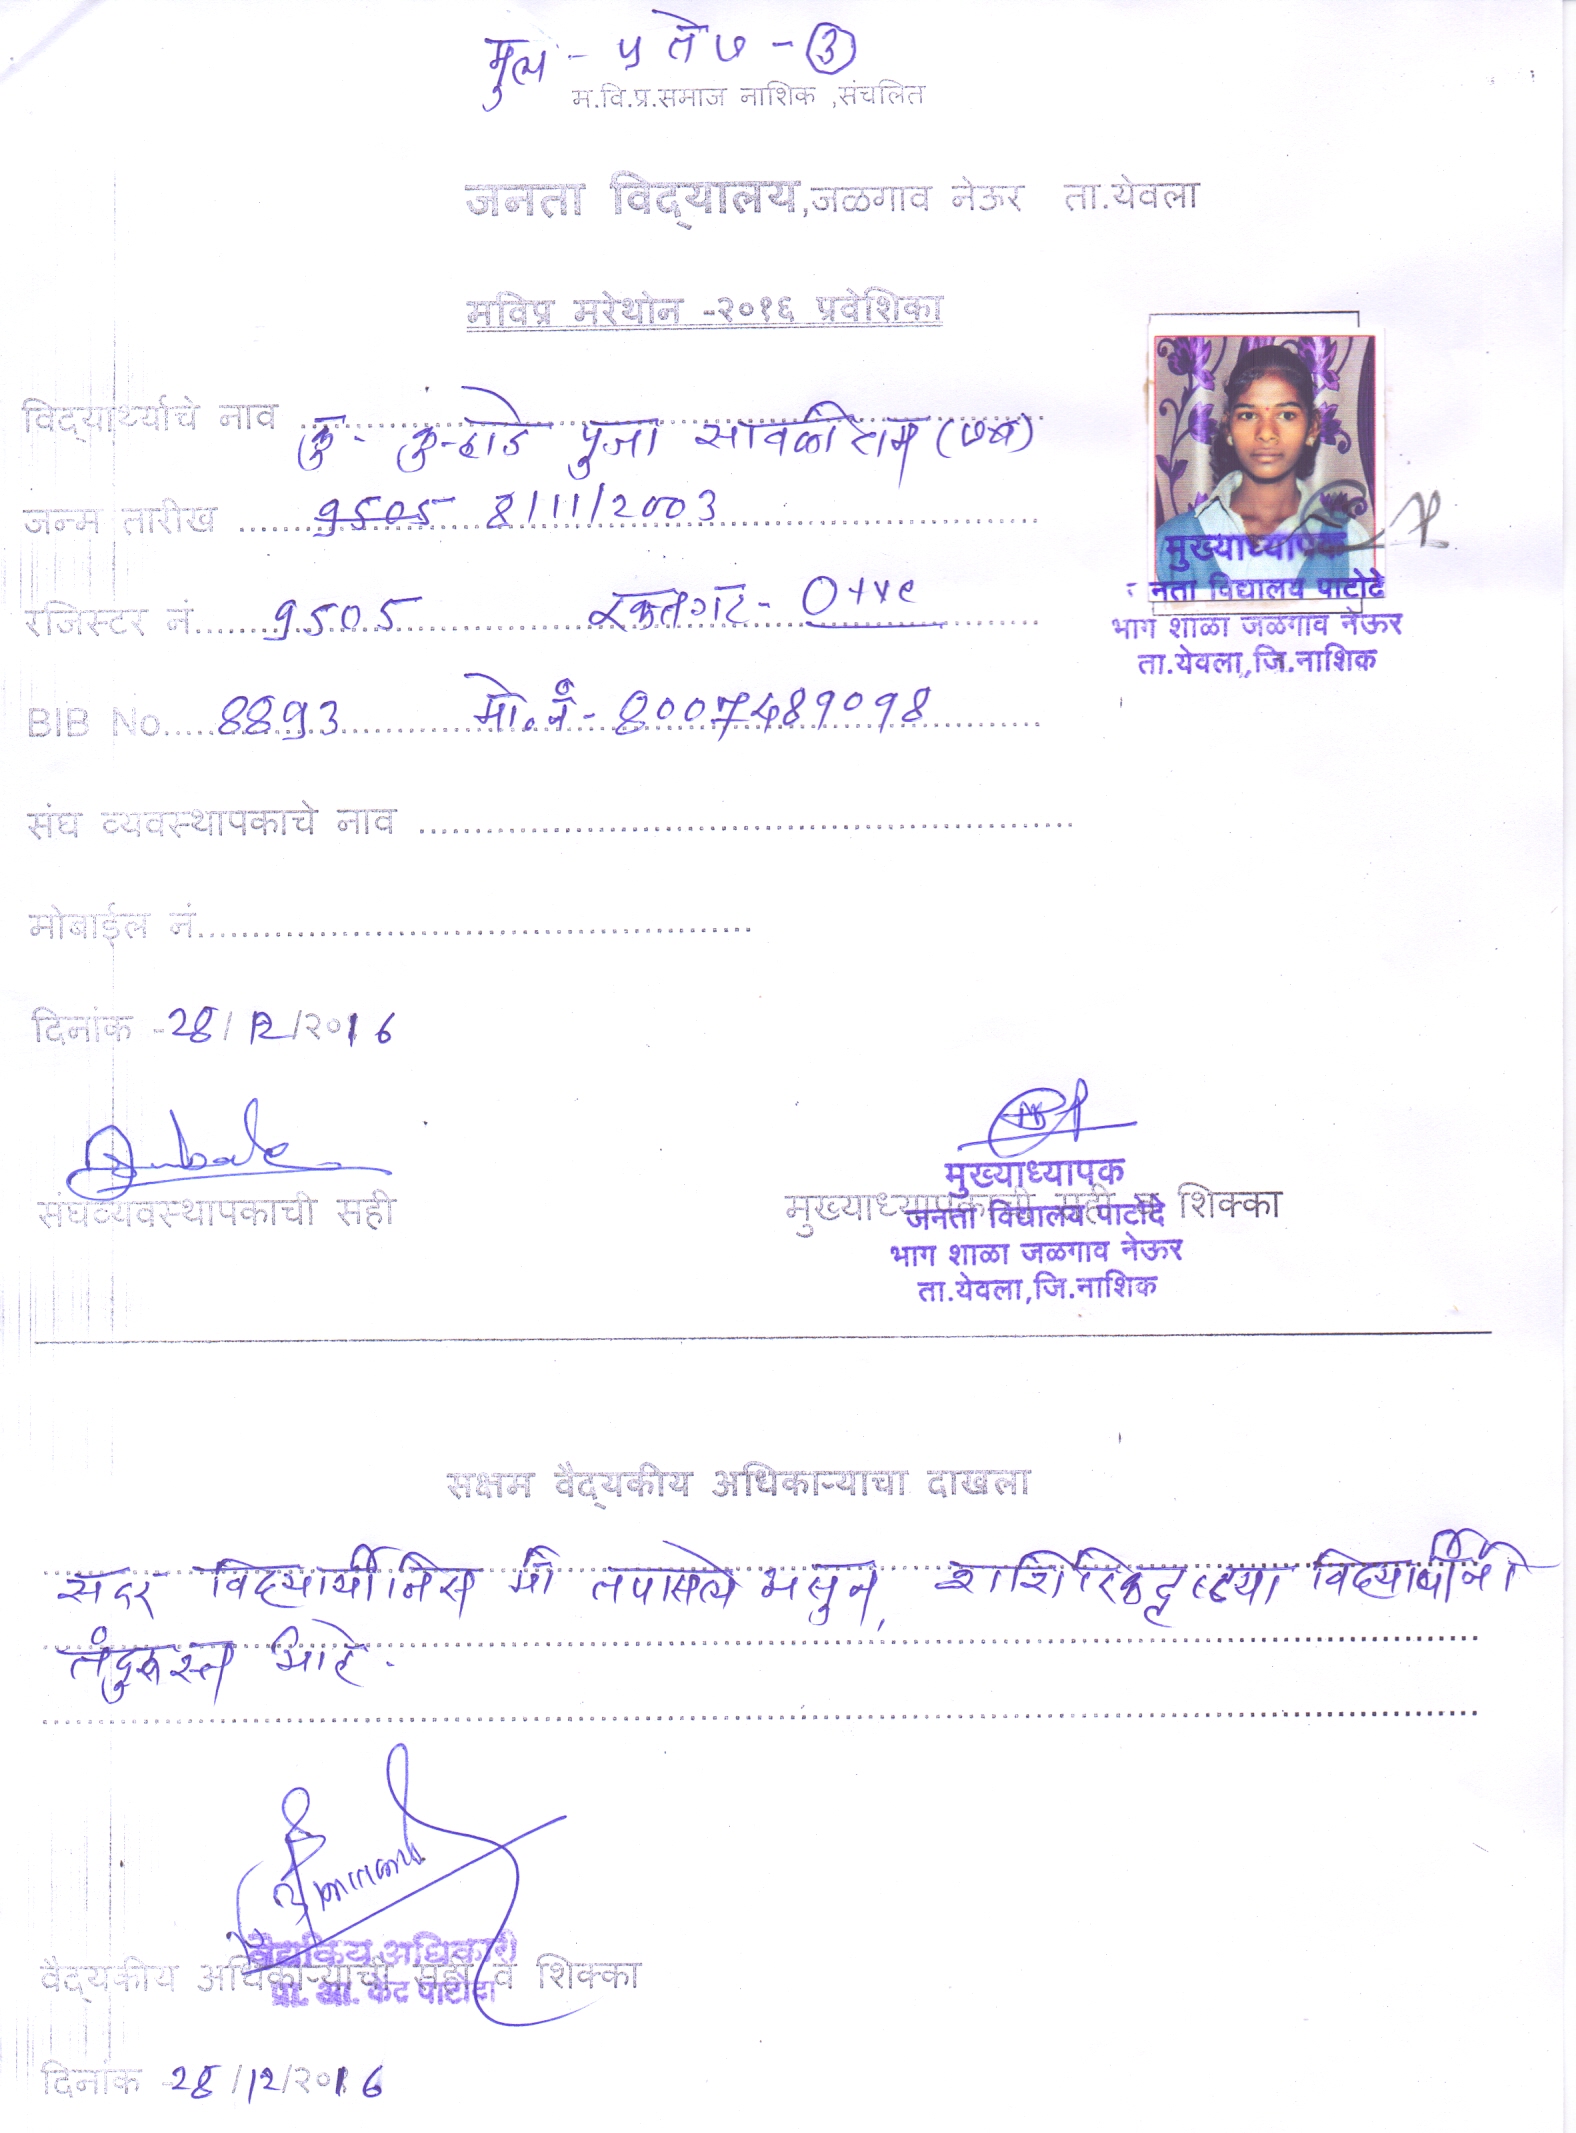 मुली - ५ ते ७ - (3)
म.वि.प्र.समाज नाशिक ,संचलित
जनता विद्‌यालय,जळगाव नेऊर ता.येवला
मविप्र मरेथोन -२०१६ प्रवेशिका
विद्‌यार्थ्याचे नाव ........ कु - कु-हाडे पुजा सावळीराम (७ब)
जन्म तारीख ........ 9505 8/11/2003
रजिस्टर नं........ 9505 रक्तगट - O+ve
BIB No..... 8893 मो.नं - 8007489098
संघ व्यवस्थापकाचे नाव ........
मोबाईल नं........
दिनांक -28/12/२०16
संघव्यवस्थापकाची सही
मुख्याध्यापकाची सही व शिक्का
मुख्याध्यापक
जनता विद्यालय पाटोदे
भाग शाळा जळगाव नेऊर
ता.येवला,जि.नाशिक
मुख्याध्यापक
नता विद्यालय पाटोदे
भाग शाळा जळगाव नेऊर
ता.येवला,जि.नाशिक
सक्षम वैद्‌यकीय अधिकाऱ्याचा दाखला
सदर विद्यार्थीनिस मी तपासले असुन, विद्यार्थीनी
तंदुरुस्त आहे.
वैद्यकिय अधिकारी
प्रा. आ. केंद्र पाटोदा
वैद्‌यकीय अधिकाऱ्याची सही व शिक्का
दिनांक -28/12/२०16